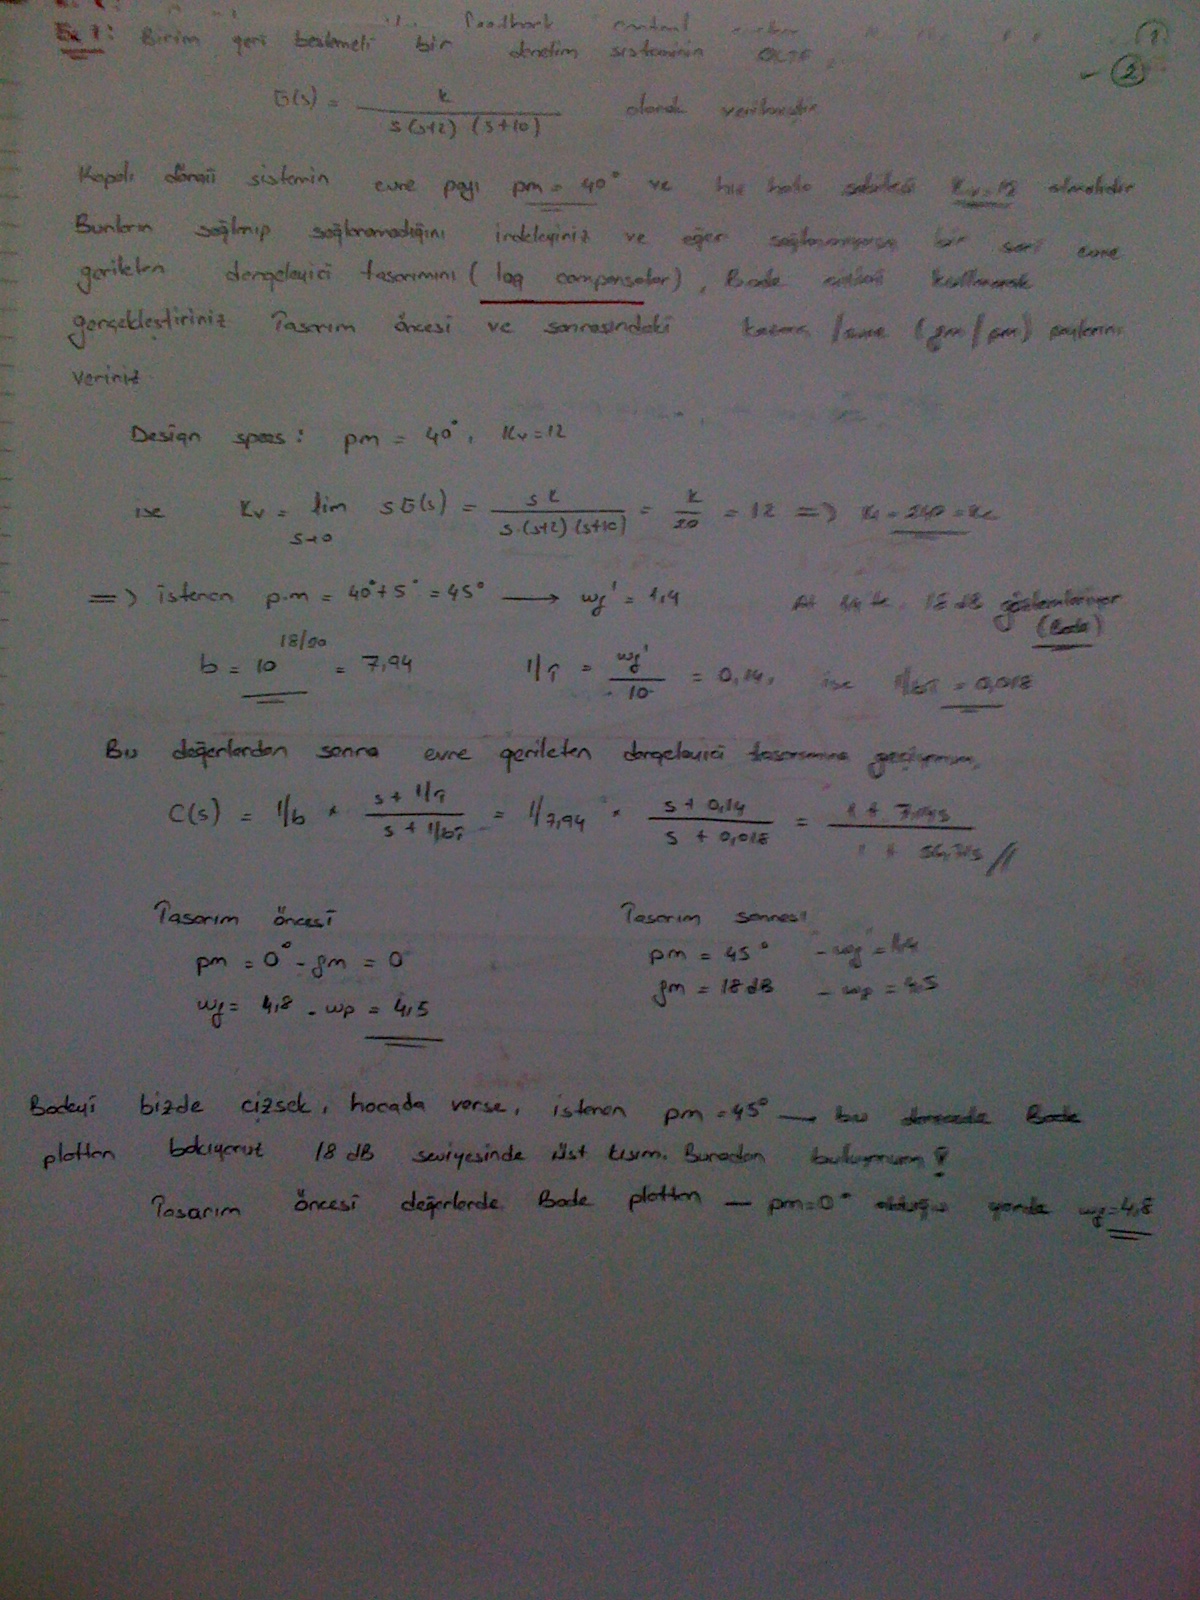 Ex 1: Birim geri beslemeli bir denetim sisteminin OLTF
2
G(s) = k / s(s+2)(s+10) olarak verilmiştir
Kapalı döngü sistemin evre payı pm = 40° ve hız hata sabiti Kv=12 olmalıdır
Bunların sağlanıp sağlanamadığını irdeleyiniz ve eğer sağlanmıyorsa bir seri evre
gerileten dengeleyici tasarımını (lag compensator), Bode çizimi kullanarak
gerçekleştiriniz Tasarım öncesi ve sonrasındaki kazanç /evre (gm/pm) paylarını
veriniz
Design specs: pm = 40°, Kv=12
ise Kv = lim s→0 sG(s) = sk / s.(s+2)(s+10) = k/20 = 12 => K = 240 = Kc
=> istenen p.m = 40°+5° = 45° → wg' = 1,4 18 dB gözlemleniyor
(Bode)
b = 10^18/20 = 7,94 1/T = wg'/10 = 0,14, ise 1/bT = 0,018
Bu değerlerden sonra evre gerileten dengeleyici tasarımına geçiyorum,
C(s) = 1/b * s + 1/T / s + 1/bT = 1/7,94 * s + 0,14 / s + 0,018 = 1 +
Tasarım öncesi Tasarım sonrası
pm = 0° - gm = 0 pm = 45° - wg' = 1,4
wg = 4,8 - wp = 4,5 gm = 18 dB - wp = 4,5
Bodeyi bizde çizsek, hocada verse, istenen pm = 45° — bu Bode
plottan bakıyoruz 18 dB seviyesinde üst kısım. Buradan buluyorum!
Tasarım öncesi değerlerde Bode plottan — pm=0° olduğu yerde wg=4,8